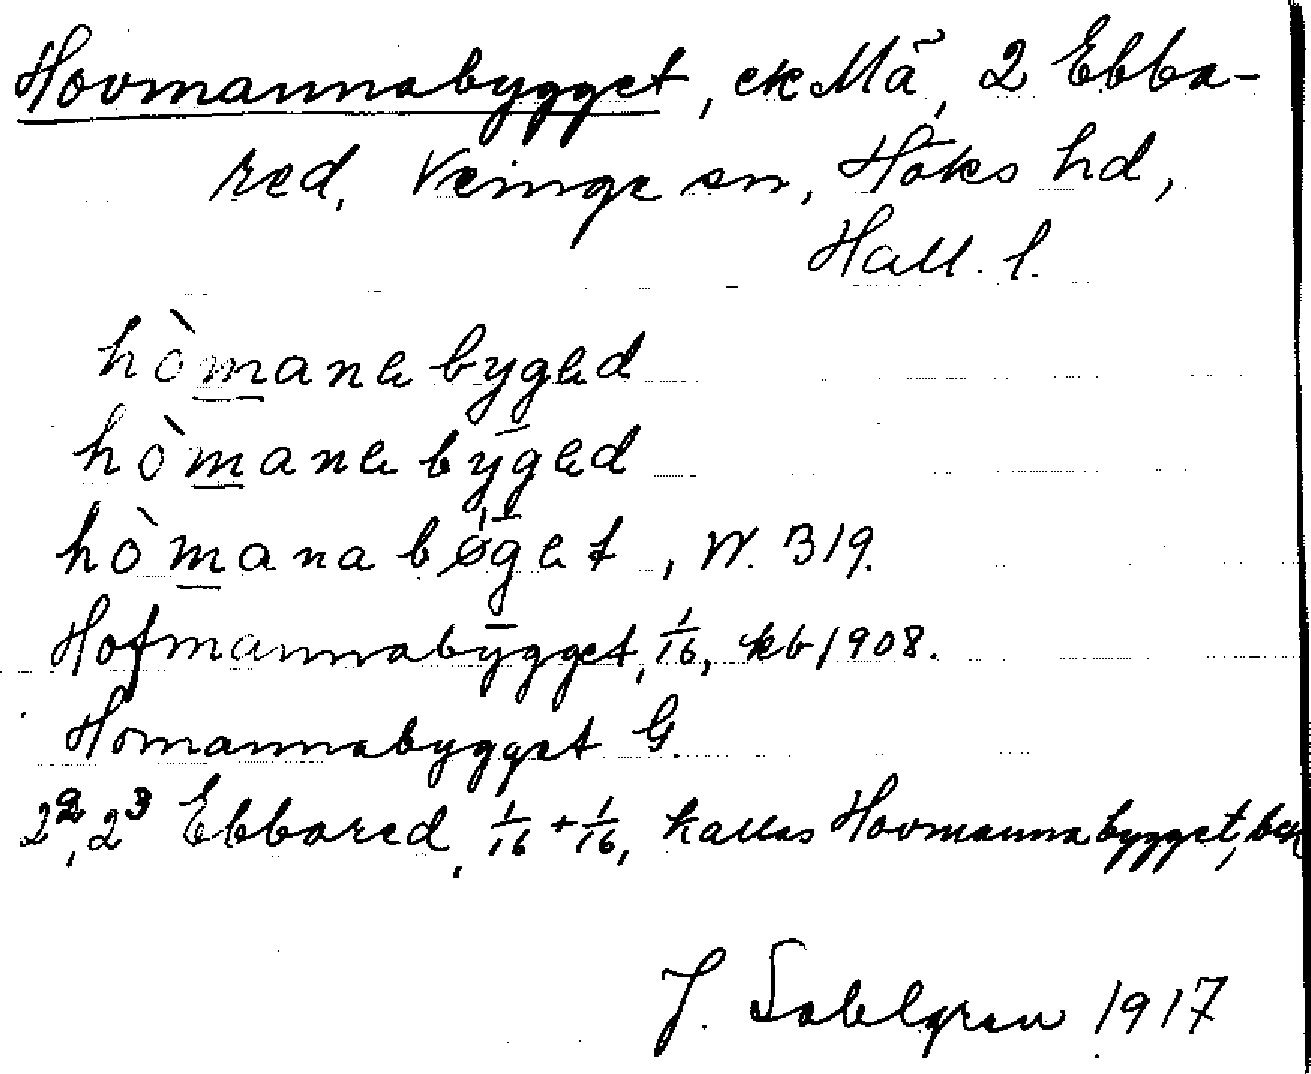 Hovmannabygget, ek Mã, 2 Ebba-
red, Veinge sn, Höks hd,
Hall. l.
hòmanabygad
hòmanabygad
hòmanabøgat, W. 319.
Hofmannabygget, 1/16, kb 1908.
Homannabygget G.
2², 2³ Ebbared, 1/16 + 1/16, kallas Hovmannabygget,
J. Sahlgren 1917